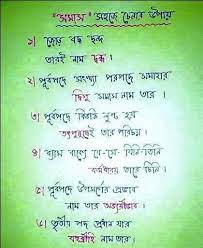 "সমাস" সহজে চেনার উপায়
১) জোড় বদ্ধ দ্বন্দ্ব
তারই নাম দ্বন্দ্ব।
২) পূর্বপদে সংখ্যা পরপদে সমাহার
দ্বিগু সমাস নাম তার।
৩) পূর্বপদে বিভক্তি লুপ্ত হয়
তৎপুরুষেই তার পরিচয়।
৪) ব্যাস বাক্যে যে-সে- যিনি-তিনি
কর্মধারয় তাকে চিনি।
৫) পূর্বপদে উপসর্গের প্রভাব
নাম তার অব্যয়ীভাব।
৬) তৃতীয় পদ প্রধান যার
বহুব্রীহি নাম তার।